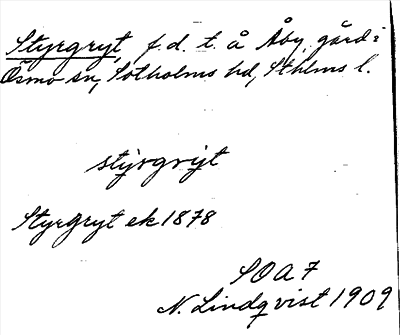 Styrgryt, f.d. t. å Åby, gård i
Ösmo sn, Sotholms hd, Sthlms l.
styrgryt
Styrgryt ek 1878
SOA 7
N. Lindqvist 1909